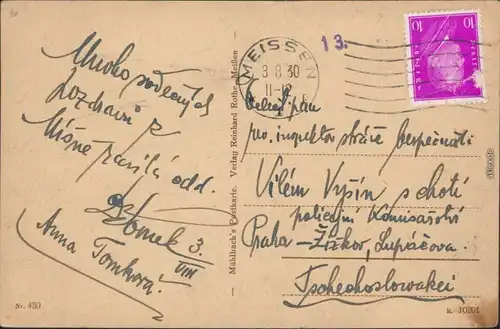 Mnoho srdečných
pozdravů z
Míšně zasílá odd.
Zdenek 3.
VIII
Anna Tomková!
Nr. 439
Mühlbach's Postkarte. Verlag Reinhard Rothe, Meißen
MEISSEN
8.8.30
11-12
13.
10 10
pan
po. inspektor stráže bezpečnosti
Vilém Vyšín s chotí
policejní Komisařství
Praha - Žižkov, Lupáčova.
Tschechoslowakei
R. 10201